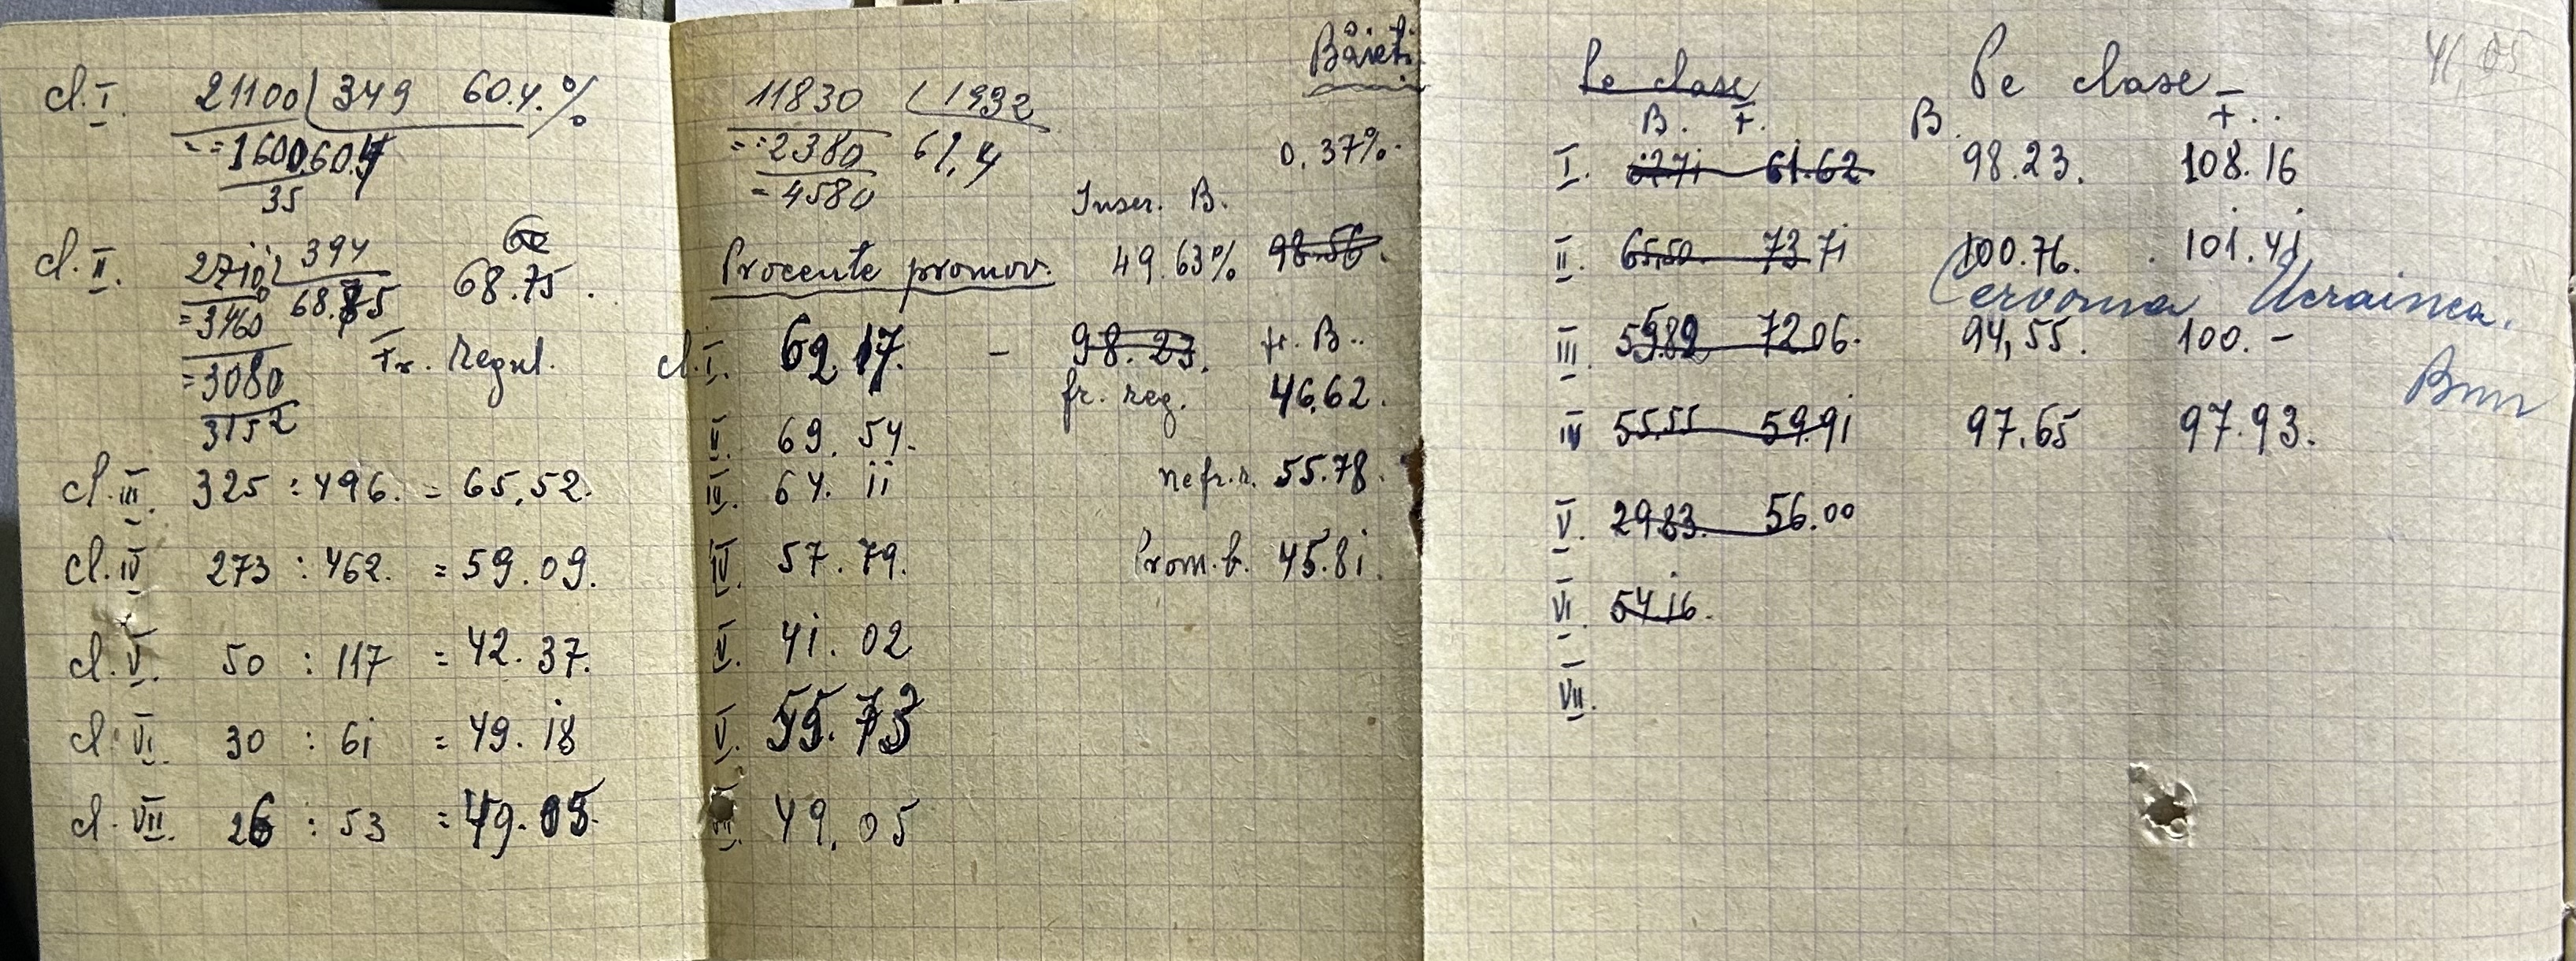 cl. I. 21100 349 60.4.%
= = 1600 60.4
35
cl. II. 27100 394
68.75.
= 3460 68.75
= 3080 Fr. Regul.
3152
cl. III. 325 : 496. = 65,52.
cl. IV 273 : 462. = 59.09.
cl. V. 50 : 117 = 42.37.
cl. VI. 30 : 61 = 49.18
cl. VII. 26 : 53 = 49.05.
Băieti
11830 1932
= : 2380 61,4
= 4580
0,37%.
Inscr. B.
Procente promov. 49.63% 98.56.
cl. I. 62.17. - 98.23. fr. B..
fr. reg. 46.62.
II. 69.54.
III. 64.11 nefr. r. 55.78.
IV. 57.79. Prom. b. 45.81.
V. 41.02
V. 55.73
VII. 49.05
41,05
Pe clase
B. F.
Pe clase
B. F..
I. 61.62 98.23. 108.16
II. 65,50. 73.71 100.76. 101.41
Cervorna Ucrainca.
III. 59.82 72.06. 94,55. 100.-
IV 55,55 59.91 97.65 97.93.
V. 29.83. 56.00
VI. 54.16.
VII.